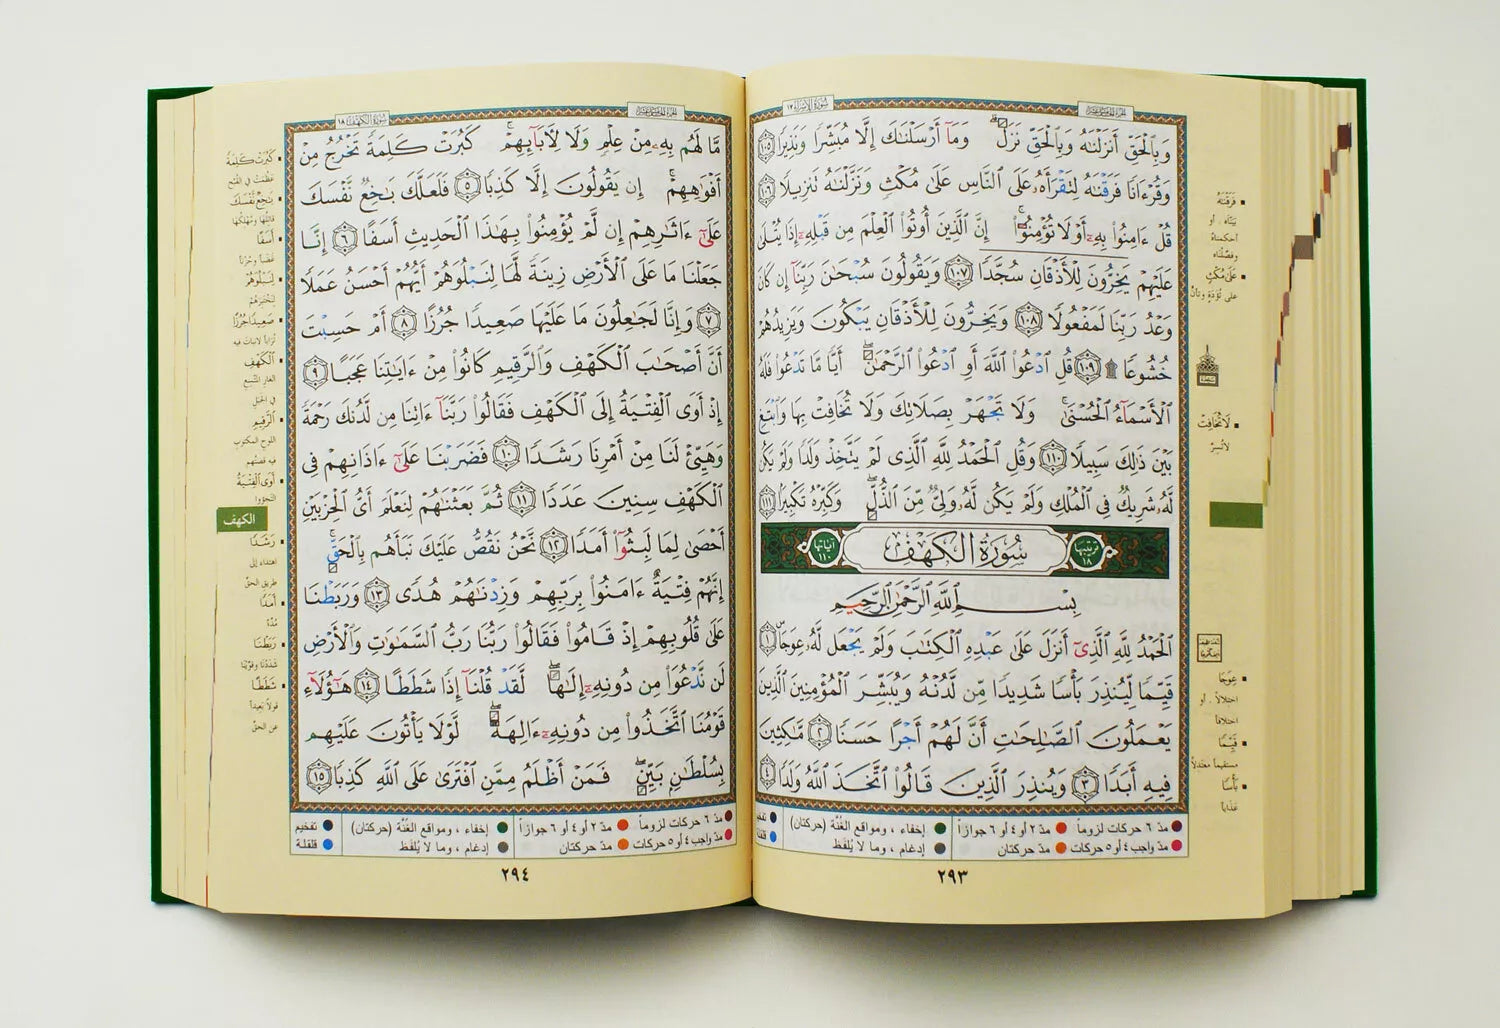 سُورَةُ الإِسْرَاء ١٧
الجزء الخامس عشر
وَبِٱلْحَقِّ أَنزَلْنَٰهُ وَبِٱلْحَقِّ نَزَلَ ۗ وَمَآ أَرْسَلْنَٰكَ إِلَّا مُبَشِّرًا وَنَذِيرًا ﴿١٠٥﴾
وَقُرْءَانًا فَرَقْنَٰهُ لِتَقْرَأَهُۥ عَلَى ٱلنَّاسِ عَلَىٰ مُكْثٍ وَنَزَّلْنَٰهُ تَنزِيلًا ﴿١٠٦﴾
قُلْ ءَامِنُوا۟ بِهِۦٓ أَوْ لَا تُؤْمِنُوٓا۟ ۚ إِنَّ ٱلَّذِينَ أُوتُوا۟ ٱلْعِلْمَ مِن قَبْلِهِۦٓ إِذَا يُتْلَىٰ
عَلَيْهِمْ يَخِرُّونَ لِلْأَذْقَانِ سُجَّدًا ﴿١٠٧﴾ وَيَقُولُونَ سُبْحَٰنَ رَبِّنَآ إِن كَانَ
وَعْدُ رَبِّنَا لَمَفْعُولًا ﴿١٠٨﴾ وَيَخِرُّونَ لِلْأَذْقَانِ يَبْكُونَ وَيَزِيدُهُمْ
خُشُوعًا ۩ ﴿١٠٩﴾ قُلِ ٱدْعُوا۟ ٱللَّهَ أَوِ ٱدْعُوا۟ ٱلرَّحْمَٰنَ ۖ أَيًّا مَّا تَدْعُوا۟ فَلَهُ
ٱلْأَسْمَآءُ ٱلْحُسْنَىٰ ۚ وَلَا تَجْهَرْ بِصَلَاتِكَ وَلَا تُخَافِتْ بِهَا وَٱبْتَغِ
بَيْنَ ذَٰلِكَ سَبِيلًا ﴿١١٠﴾ وَقُلِ ٱلْحَمْدُ لِلَّهِ ٱلَّذِى لَمْ يَتَّخِذْ وَلَدًا وَلَمْ يَكُن
لَّهُۥ شَرِيكٌ فِى ٱلْمُلْكِ وَلَمْ يَكُن لَّهُۥ وَلِىٌّ مِّنَ ٱلذُّلِّ ۖ وَكَبِّرْهُ تَكْبِيرًا ﴿١١١﴾
ترتيبها ١٨ سُورَةُ الكَهْفِ آياتها ١١٠
بِسْمِ ٱللَّهِ ٱلرَّحْمَٰنِ ٱلرَّحِيمِ
ٱلْحَمْدُ لِلَّهِ ٱلَّذِىٓ أَنزَلَ عَلَىٰ عَبْدِهِ ٱلْكِتَٰبَ وَلَمْ يَجْعَل لَّهُۥ عِوَجَا ۜ ﴿١﴾
قَيِّمًا لِّيُنذِرَ بَأْسًا شَدِيدًا مِّن لَّدُنْهُ وَيُبَشِّرَ ٱلْمُؤْمِنِينَ ٱلَّذِينَ
يَعْمَلُونَ ٱلصَّٰلِحَٰتِ أَنَّ لَهُمْ أَجْرًا حَسَنًا ﴿٢﴾ مَّٰكِثِينَ
فِيهِ أَبَدًا ﴿٣﴾ وَيُنذِرَ ٱلَّذِينَ قَالُوا۟ ٱتَّخَذَ ٱللَّهُ وَلَدًا ﴿٤﴾
فَرَقْنَاهُ
بيّنّاه . أو
أحكمناه
وفصّلناه
عَلَى مُكْثٍ
على تُؤدَةٍ وتأنٍّ
لَا تُخَافِتْ
لا تُسِرّ
عِوَجًا
اختلالاً . أو
اختلافاً
قَيِّمًا
مستقيماً معتدلاً
بَأْسًا
عذاباً
مدّ ٦ حركات لزوماً مدّ ٢ أو ٤ أو ٦ جوازاً إخفاء ، ومواقع الغُنَّة (حركتان) تفخيم
مدّ واجب ٤ أو ٥ حركات مدّ حركتان إدغام ، وما لا يُلفَظ قلقلة
٢٩٣
الجزء الخامس عشر
سُورَةُ الكَهْفِ ١٨
مَّا لَهُم بِهِۦ مِنْ عِلْمٍ وَلَا لِـَٔابَآئِهِمْ ۚ كَبُرَتْ كَلِمَةً تَخْرُجُ مِنْ
أَفْوَٰهِهِمْ ۚ إِن يَقُولُونَ إِلَّا كَذِبًا ﴿٥﴾ فَلَعَلَّكَ بَٰخِعٌ نَّفْسَكَ
عَلَىٰٓ ءَاثَٰرِهِمْ إِن لَّمْ يُؤْمِنُوا۟ بِهَٰذَا ٱلْحَدِيثِ أَسَفًا ﴿٦﴾ إِنَّا
جَعَلْنَا مَا عَلَى ٱلْأَرْضِ زِينَةً لَّهَا لِنَبْلُوَهُمْ أَيُّهُمْ أَحْسَنُ عَمَلًا
﴿٧﴾ وَإِنَّا لَجَٰعِلُونَ مَا عَلَيْهَا صَعِيدًا جُرُزًا ﴿٨﴾ أَمْ حَسِبْتَ
أَنَّ أَصْحَٰبَ ٱلْكَهْفِ وَٱلرَّقِيمِ كَانُوا۟ مِنْ ءَايَٰتِنَا عَجَبًا ﴿٩﴾
إِذْ أَوَى ٱلْفِتْيَةُ إِلَى ٱلْكَهْفِ فَقَالُوا۟ رَبَّنَآ ءَاتِنَا مِن لَّدُنكَ رَحْمَةً
وَهَيِّئْ لَنَا مِنْ أَمْرِنَا رَشَدًا ﴿١٠﴾ فَضَرَبْنَا عَلَىٰٓ ءَاذَانِهِمْ فِى
ٱلْكَهْفِ سِنِينَ عَدَدًا ﴿١١﴾ ثُمَّ بَعَثْنَٰهُمْ لِنَعْلَمَ أَىُّ ٱلْحِزْبَيْنِ
أَحْصَىٰ لِمَا لَبِثُوٓا۟ أَمَدًا ﴿١٢﴾ نَّحْنُ نَقُصُّ عَلَيْكَ نَبَأَهُم بِٱلْحَقِّ ۚ
إِنَّهُمْ فِتْيَةٌ ءَامَنُوا۟ بِرَبِّهِمْ وَزِدْنَٰهُمْ هُدًى ﴿١٣﴾ وَرَبَطْنَا
عَلَىٰ قُلُوبِهِمْ إِذْ قَامُوا۟ فَقَالُوا۟ رَبُّنَا رَبُّ ٱلسَّمَٰوَٰتِ وَٱلْأَرْضِ
لَن نَّدْعُوَا۟ مِن دُونِهِۦٓ إِلَٰهًا ۖ لَّقَدْ قُلْنَآ إِذًا شَطَطًا ﴿١٤﴾ هَٰٓؤُلَآءِ
قَوْمُنَا ٱتَّخَذُوا۟ مِن دُونِهِۦٓ ءَالِهَةً ۖ لَّوْلَا يَأْتُونَ عَلَيْهِم
بِسُلْطَٰنٍۭ بَيِّنٍ ۖ فَمَنْ أَظْلَمُ مِمَّنِ ٱفْتَرَىٰ عَلَى ٱللَّهِ كَذِبًا ﴿١٥﴾
كَبُرَتْ كَلِمَةً
عَظُمَت في القُبْح
بَاخِعٌ نَفْسَكَ
قاتِلُها ومُهلِكُها
أَسَفًا
غَضَباً وحُزناً
لِنَبْلُوَهُمْ
لِنَختَبِرَهم
صَعِيدًا جُرُزًا
تُراباً لا نبات فيه
الْكَهْفِ
الغار المُتّسِع
في الجبل
الرَّقِيمِ
اللوح المكتوب
فيه قصتُهم
أَوَى الْفِتْيَةُ
التَجؤوا
الكهف
رَشَدًا
اهتداء إلى
طريق الحقّ
أَمَدًا
مُدّة
رَبَطْنَا
شَدَدْنا وقَوَّيْنا
شَطَطًا
قولاً بعيداً
عن الحقّ
مدّ ٦ حركات لزوماً مدّ ٢ أو ٤ أو ٦ جوازاً إخفاء ، ومواقع الغُنَّة (حركتان) تفخيم
مدّ واجب ٤ أو ٥ حركات مدّ حركتان إدغام ، وما لا يُلفَظ قلقلة
٢٩٤